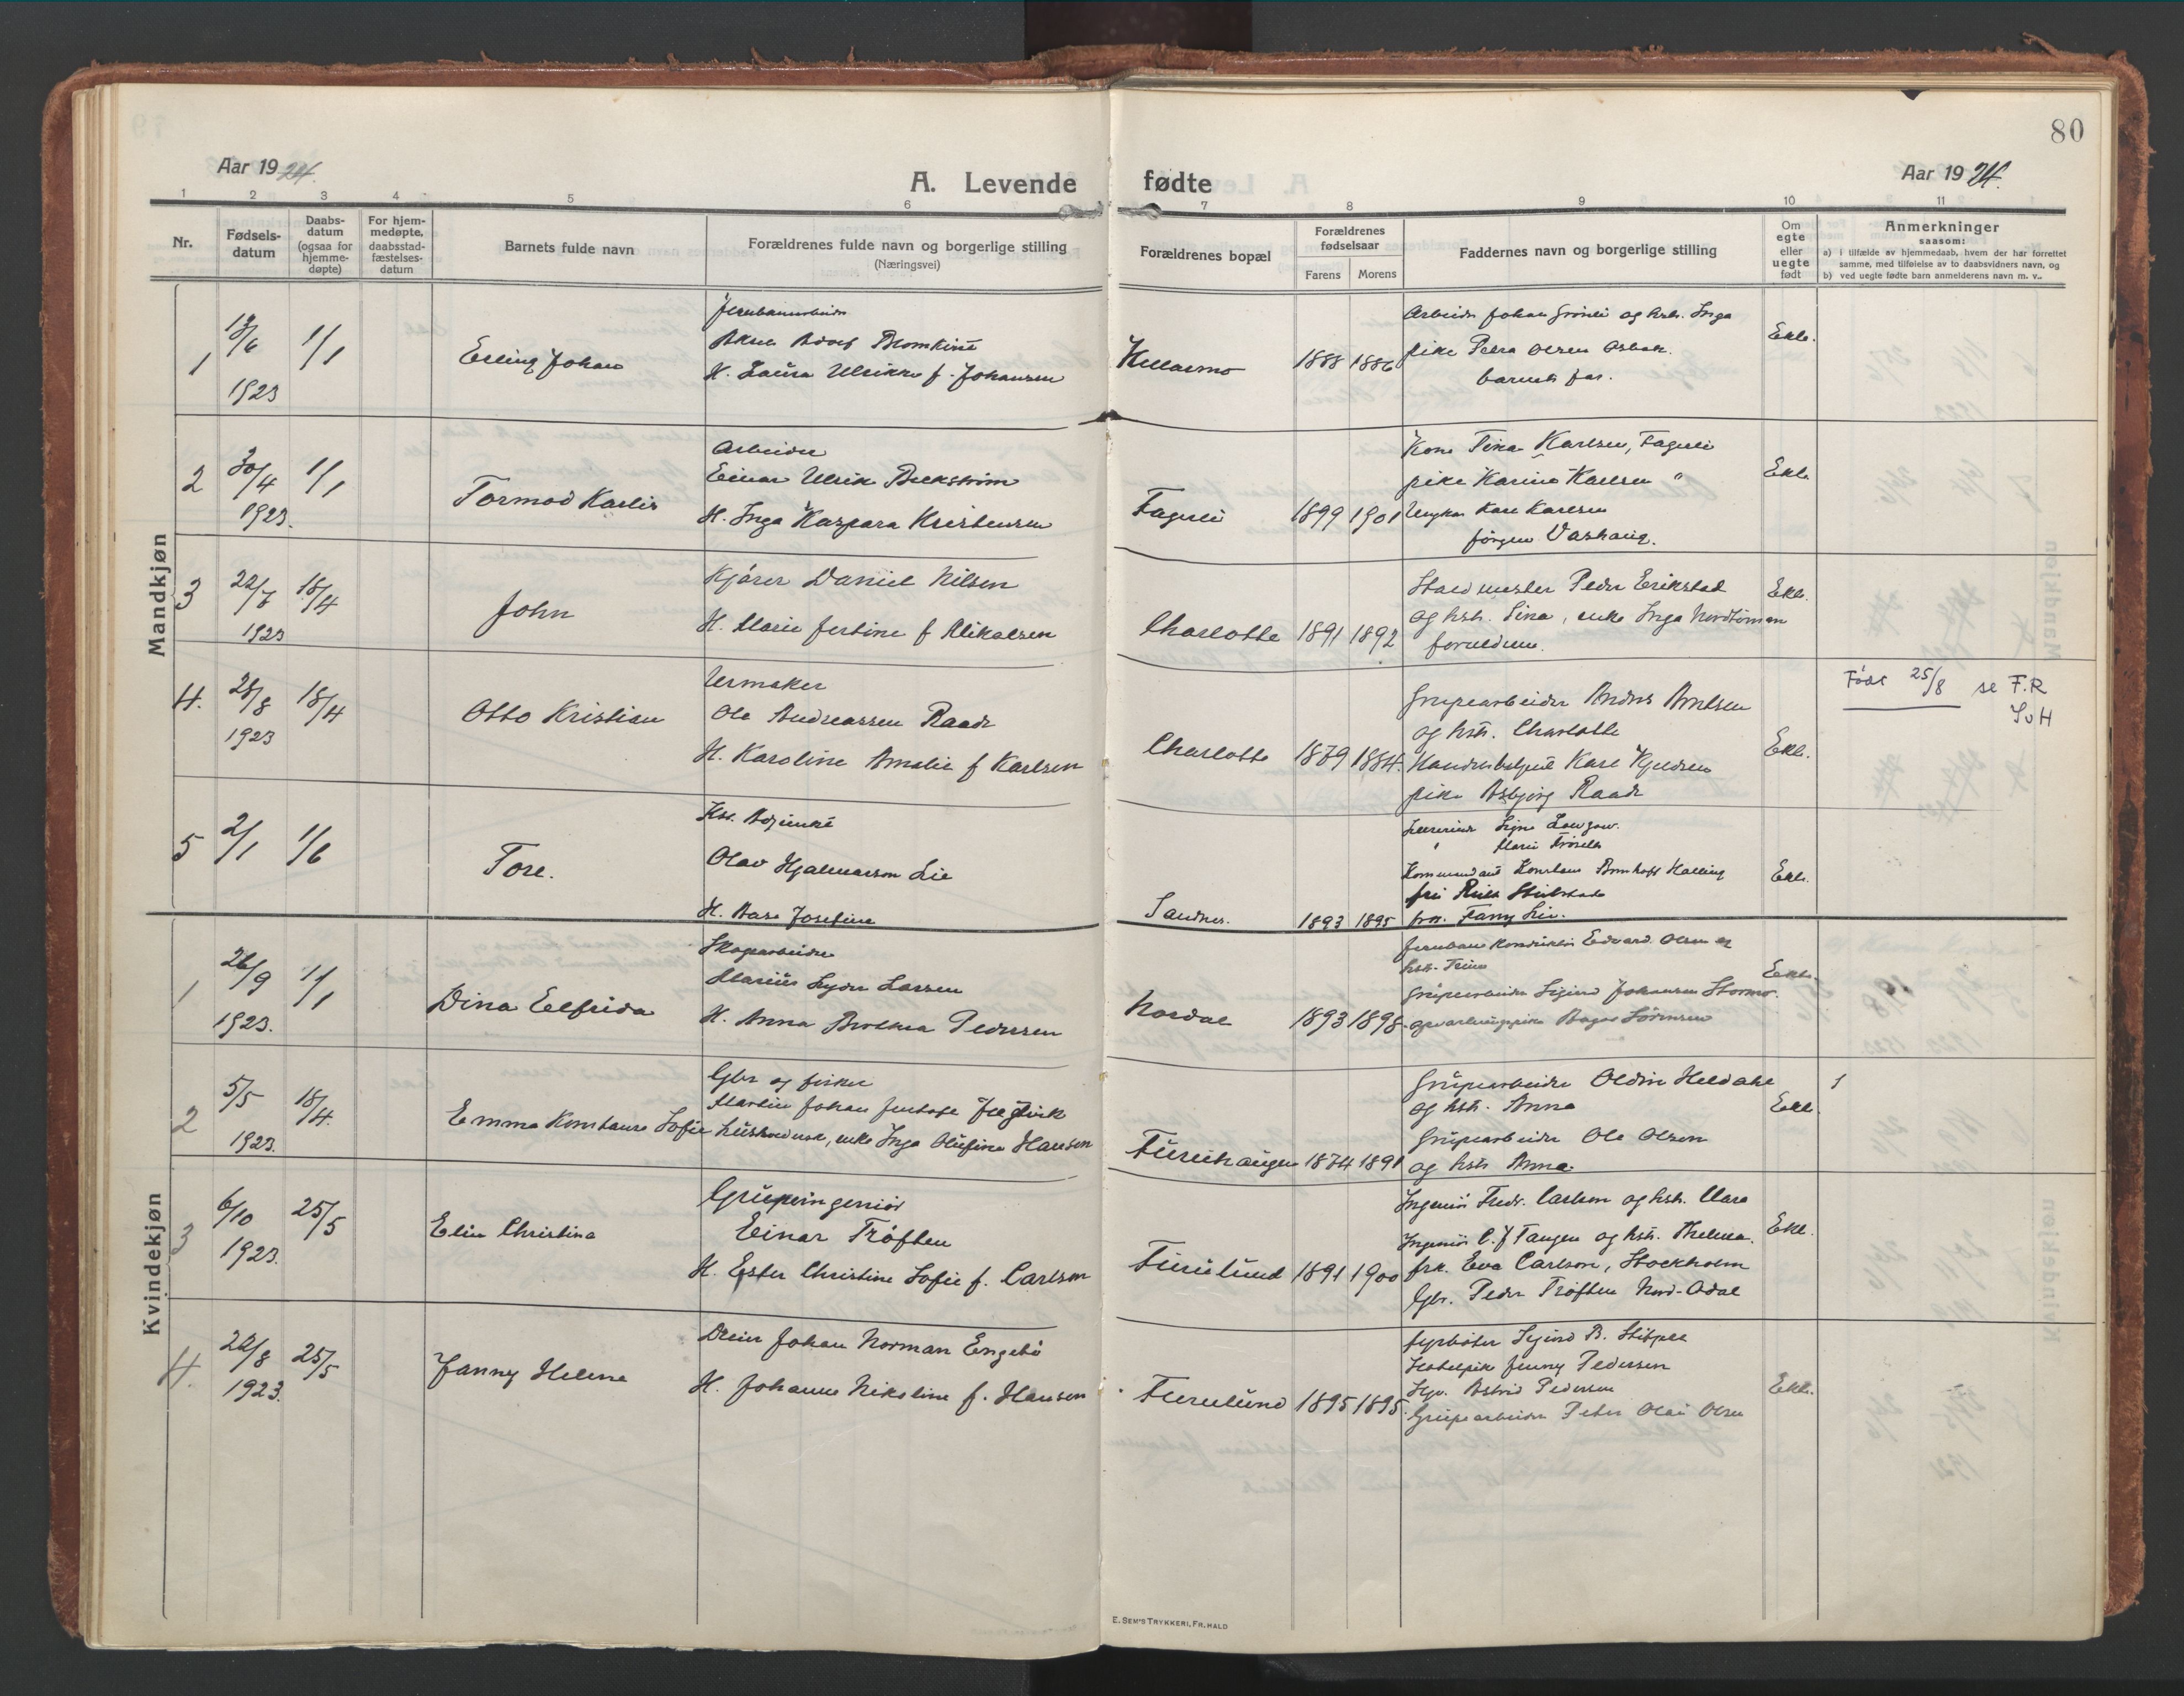 80
Aar 1924.
A. Levende fødte
Aar 1924.
1 2 3 4 5 6 7 8 9 10 11
Nr.
Fødsels-datum
Daabs-datum (ogsaa for hjemme-døpte)
For hjem-medøpte, daabsstad-fæstelses-datum
Barnets fulde navn
Forældrenes fulde navn og borgerlige stilling
(Næringsvei)
Forældrenes bopæl
Forældrenes fødselsaar
Farens Morens
Faddernes navn og borgerlige stilling
Om egte eller uegte født
Anmerkninger
saasom:
a) i tilfælde av hjemmedaab, hvem der har forrettet samme, med tilføielse av to daabsvidners navn, og
b) ved uegte fødte barn anmelderens navn m. v..
Mandkjøn
1
1923
1/1
Erling Johan
H. Laura Ulrikke f. Johansen
1888 1886
Arbeider Johan Grönli og hstr. Inga
pike Petra Olsen
barnets far.
Ekte.
2
30/4
1923.
1/1
Tormod Karlis
Arbeider
Einar Ulrik
H. Inga Kaspara Kristensen
Fagerli
1899 1901
Kone Tina Karlsen, Fagerli
pike Karine Karlsen "
Ungkar Kare Karlsen
Jörgen
Ekte
3
22/7
1923
18/4
John
Kjører Daniel Nilsen
H. Marie Jertine f Mikalsen
Charlotte
1891 1892
Staldmester Peder Erikstad
og hstr. Lina, enke Inga
foreldrene.
Ekte.
4.
28/8
1923
18/4
Otto Kristian
Urmaker
Ole Andreassen Raade
H. Karoline Amalie f Karlsen
Charlotte
1879 1884.
Grupearbeider Anders Arntsen
og hstr. Charlotte
pike Asbjørg Raade
Ekte.
Født 25/8 se F.R
SvH
5
2/1
1/6
Tore.
Olav Hjalmarson Lie
H. Aase Josefine
Sandnes.
1893 1895
frk. Fanny Lie.
Ekte.
Kvindekjøn
1
26/9
1923.
1/1
Dina Elfrida
Skogarbeider
Marius Lyder Larsen
H. Anna Pedersen
Nordal
1893 1898.
Jernbane Konduktör Edvard Olsen og
hstr. Trine
Grupearbeider Sigurd Johansen Stormo.
Ekte.
2
5/5
1923.
18/4.
Emma Konstanse Sofie
Gbr og fisker
Martin Johan
enke Inga Olufine Hansen
Furuhaugen
1874 1891
Grupearbeider Oldin Heldahl
og hstr. Anna
Grupearbeider Ole Olsen
og hstr Anna.
Ekte.
3
6/10
1923.
25/5
Elin Christina
Grupeingeniör
Einar Tröften
H. Ester Christine Sofie f. Carlson
Furulund
1891 1900
Ingeniör Fredr. Carlson og hstr. Clara
Ingeniör C. J Tangen og hstr. Thelma.
frk. Eva Carlson, Stockholm
Gbr. Peder Tröften Nord-Odal
Ekte.
4.
22/8
1923.
25/5
Fanny Helene
Dreier Johan Norman Engebö
H. Johanne Nikoline f. Hansen
Furulund
1895 1895.
Fyrböter Sigurd B.
Hotelpike Jenny Pedersen
Astrid Pedersen
Grupearbeider Peter Olai Olsen
Ekte.
E. SEM'S TRYKKERI, FR.HALD